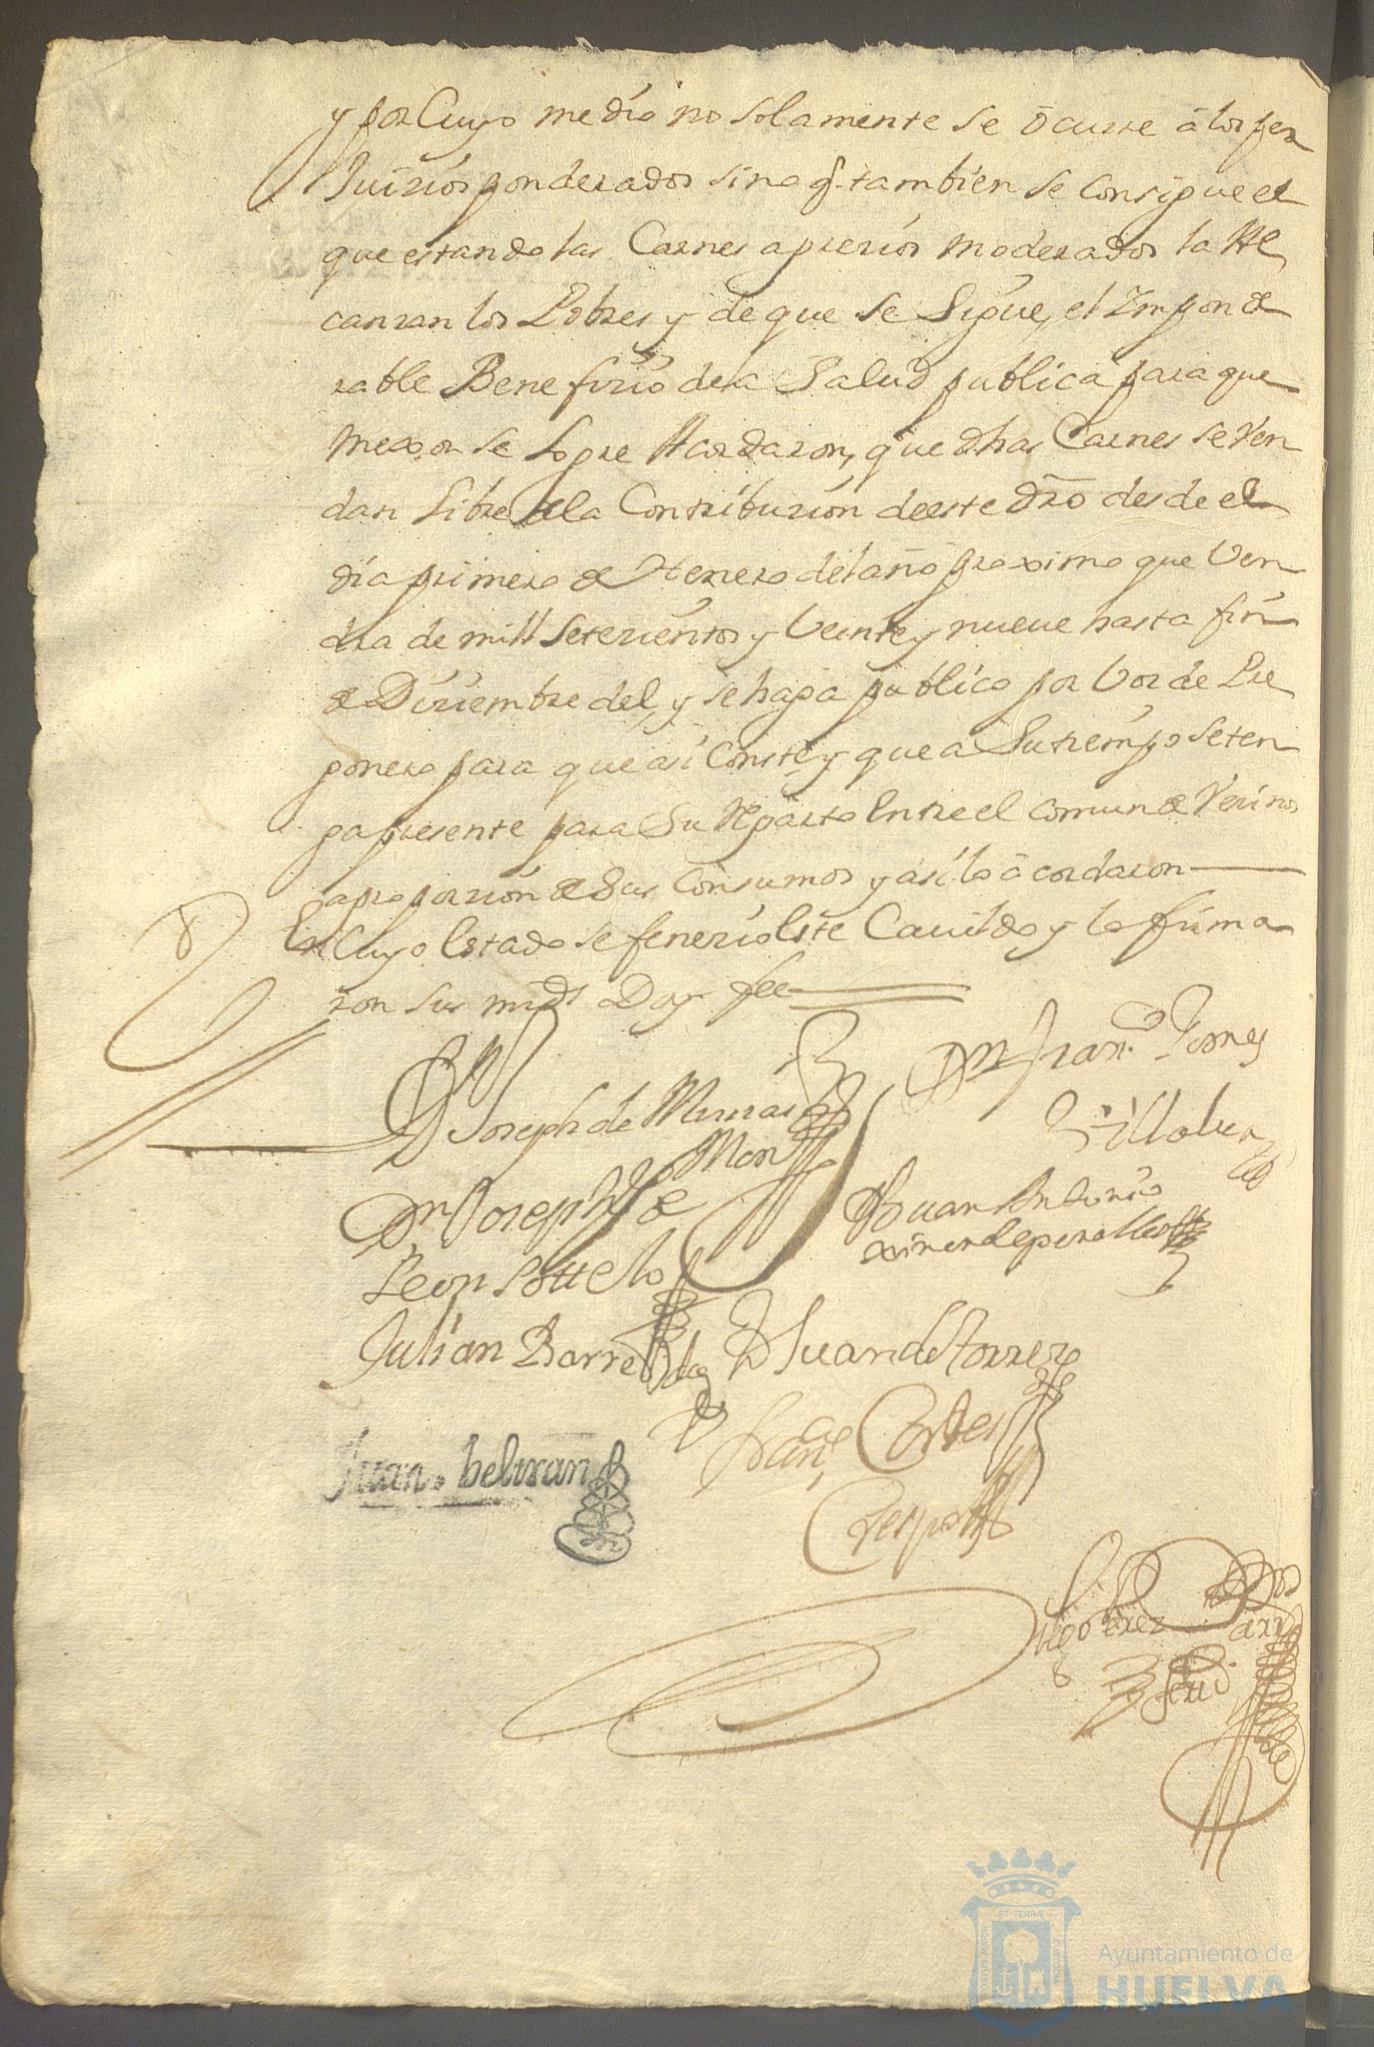 y por Cuyo medio no solamente se ōcurre â los per
Juizios ponderados sino q.e tambien se consigue el
que estando las Carnes a prezios moderados la Al
canzan los Pobres y de que se Sigue, el Ympond
rable Benefizio dela Salud publica para que
mexor se Logre Acordaron, que dhas Carnes se Ven
dan Libre de la Contribuzion de este dro desde el
dia primero de Henero del año proximo que Ven
dra de mill Setezientos y Veinte y nueve hasta fin
de Diziembre del, y se haga publico por Voz de Pre
gonero para que asi Conste y que a Su tiempo se ten
ga presente para Su Reparto Entre el comun de Vezinos
a proporzion de Sus Consumos y asi lo âcordaron
En Cuyo Estado se fenezio Este Cauildo y lo firma
ron sus mrds Doy fee
Dn Joseph de
Dn Fran.co Gomes
Villalua
Dn Joseph de
Leon Sottelo
D Juan Antonio
Julian Barre
D Juan de Torrero
Juan beltran
Fran.co Cortes
Crespo
Diego Perez
Ayuntamiento de
HUELVA